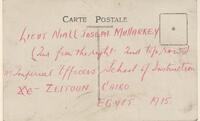 CARTE POSTALE
LIEUT NIALL JOSEPH MULLARKEY
(2nd from the right 2nd top row)
Imperial Officers School of Instruction
ZEITOUN CAIRO
EGYPT 1915.